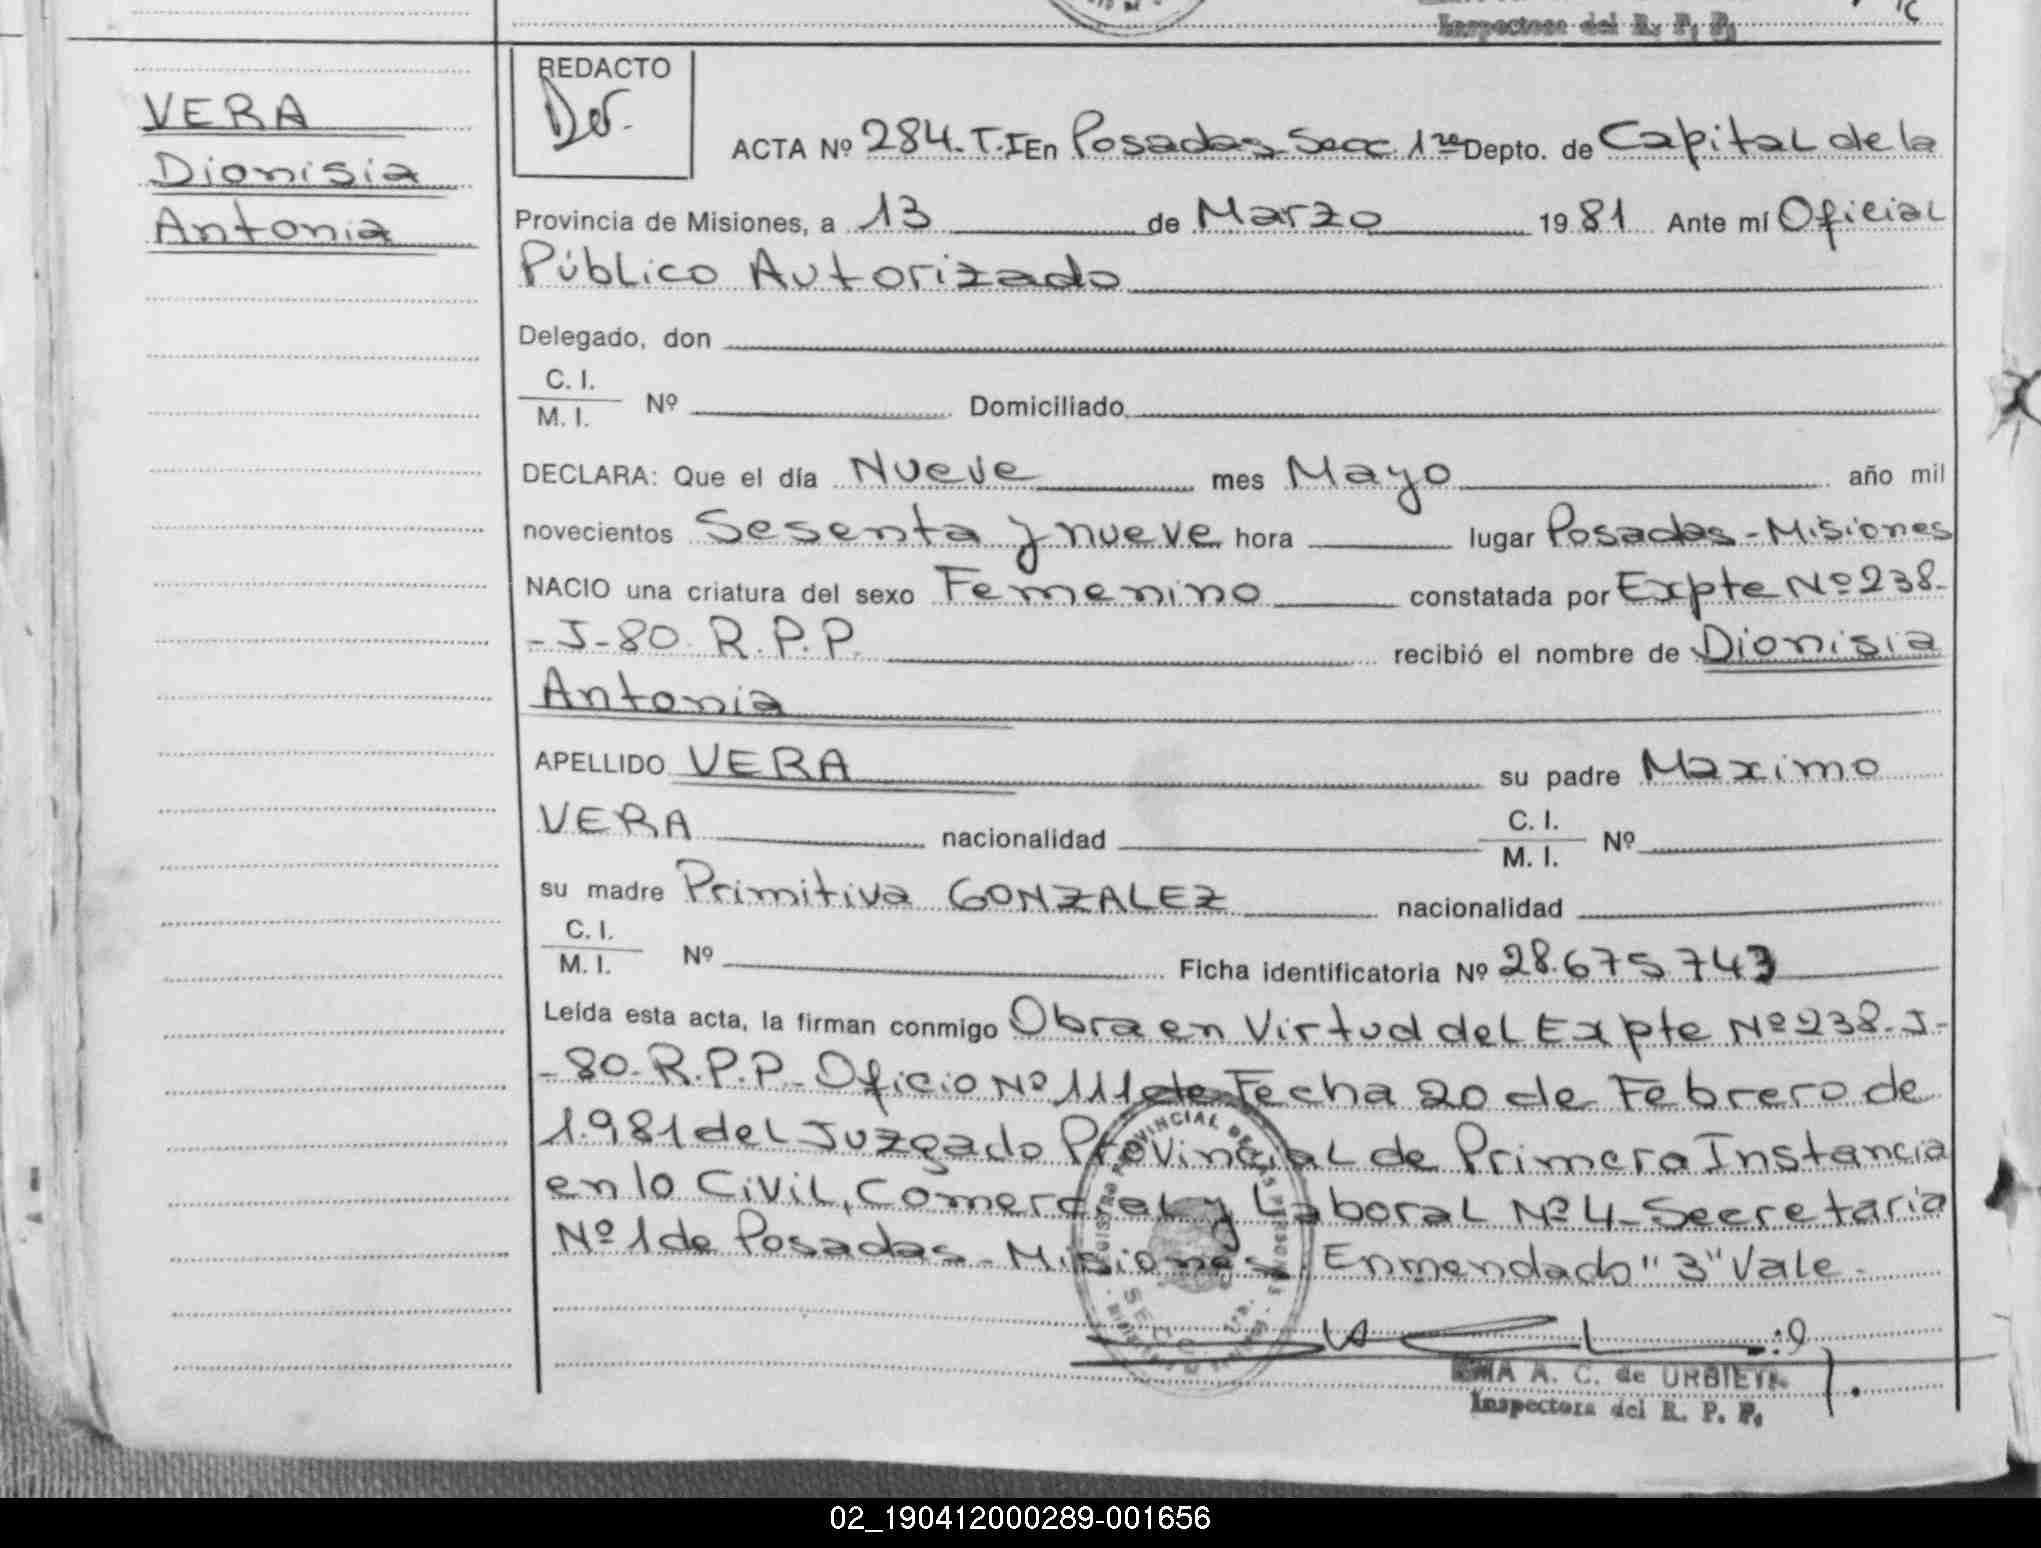 Inspectora del R. P. P.
VERA
Dionisia
Antonia
REDACTO
ACTA Nº 284. T. I En Posadas Secc. 1ra Depto. de Capital de la
Provincia de Misiones, a 13 de Marzo 1981 Ante mí Oficial
Público Autorizado
Delegado, don
C. I.
M. I. Nº Domiciliado
DECLARA: Que el día Nueve mes Mayo año mil
novecientos Sesenta y nueve hora lugar Posadas - Misiones
NACIO una criatura del sexo Femenino constatada por Expte Nº 238-
-J-80. R.P.P. recibió el nombre de Dionisia
Antonia
APELLIDO VERA su padre Maximo
VERA nacionalidad C. I. M. I. Nº
su madre Primitiva GONZALEZ nacionalidad
C. I.
M. I. Nº Ficha identificatoria Nº 28.675.743
Leída esta acta, la firman conmigo Obra en Virtud del Expte Nº 238-J-
-80-R.P.P- Oficio Nº 111 de Fecha 20 de Febrero de
1.981 del Juzgado Provincial de Primera Instancia
en lo Civil, Comercial y Laboral Nº 4- Secretaria
Nº 1 de Posadas - Misiones. Enmendado "3" Vale-
REGISTRO PROVINCIAL DE LAS PERSONAS
SECC. 1ra.
A. C. de URBIETA
Inspectora del R. P. P.
02_190412000289-001656